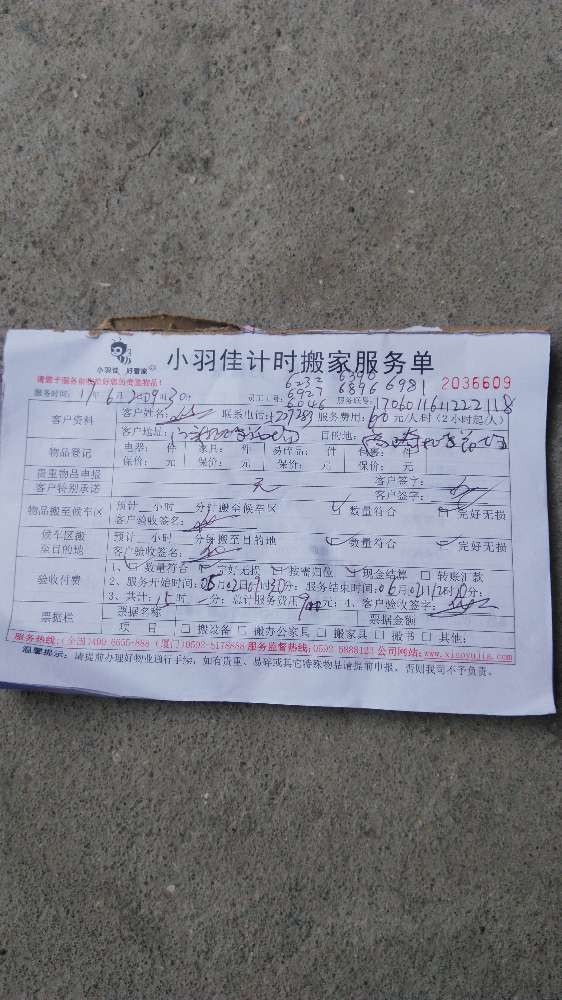 小羽佳 好管家
小羽佳计时搬家服务单
请您于服务前收拾好您的贵重物品!
6232 6398
服务时间: 17年6月2日09时30分 员工工号: 6927 6896 6981 2036609
6046 服务账号: 1706011611222118
客户资料 客户姓名: 联系电话: 服务费用: 60元/人/时(2小时起/人)
客户地址: 目的地:
物品登记 电器: 件 家具: 件 易碎品: 件 件
保价: 元 保价: 元 保价: 元 保价: 元
贵重物品申报 无 客户签字:
客户特别承诺 客户签字:
物品搬至候车区 预计__小时__分钟搬至候车区 数量符合 完好无损
客户验收签名:
候车区搬至目的地 预计__小时__分钟搬至目的地 数量符合 完好无损
客户验收签名:
验收付费 1、数量符合 完好无损 按需归位 现金结算 转账汇款
2、服务开始时间: 06月02日09时30分; 服务结束时间: 06月02日12时00分;
3、共计: 15时 分; 总计服务费用: 900元; 4、客户验收签字:
票据栏 票据名称 票据金额
项 目 搬设备 搬办公家具 搬家具 搬书 其他:
服务热线:(全国)400-8655-888 (厦门)0592-5178888 服务监督热线:0592-5888123 公司网站:www.xiaoyujia.com
温馨提示: 请提前办理好物业通行手续, 如有贵重、易碎或其它特殊物品请提前申报, 否则我司不予负责。